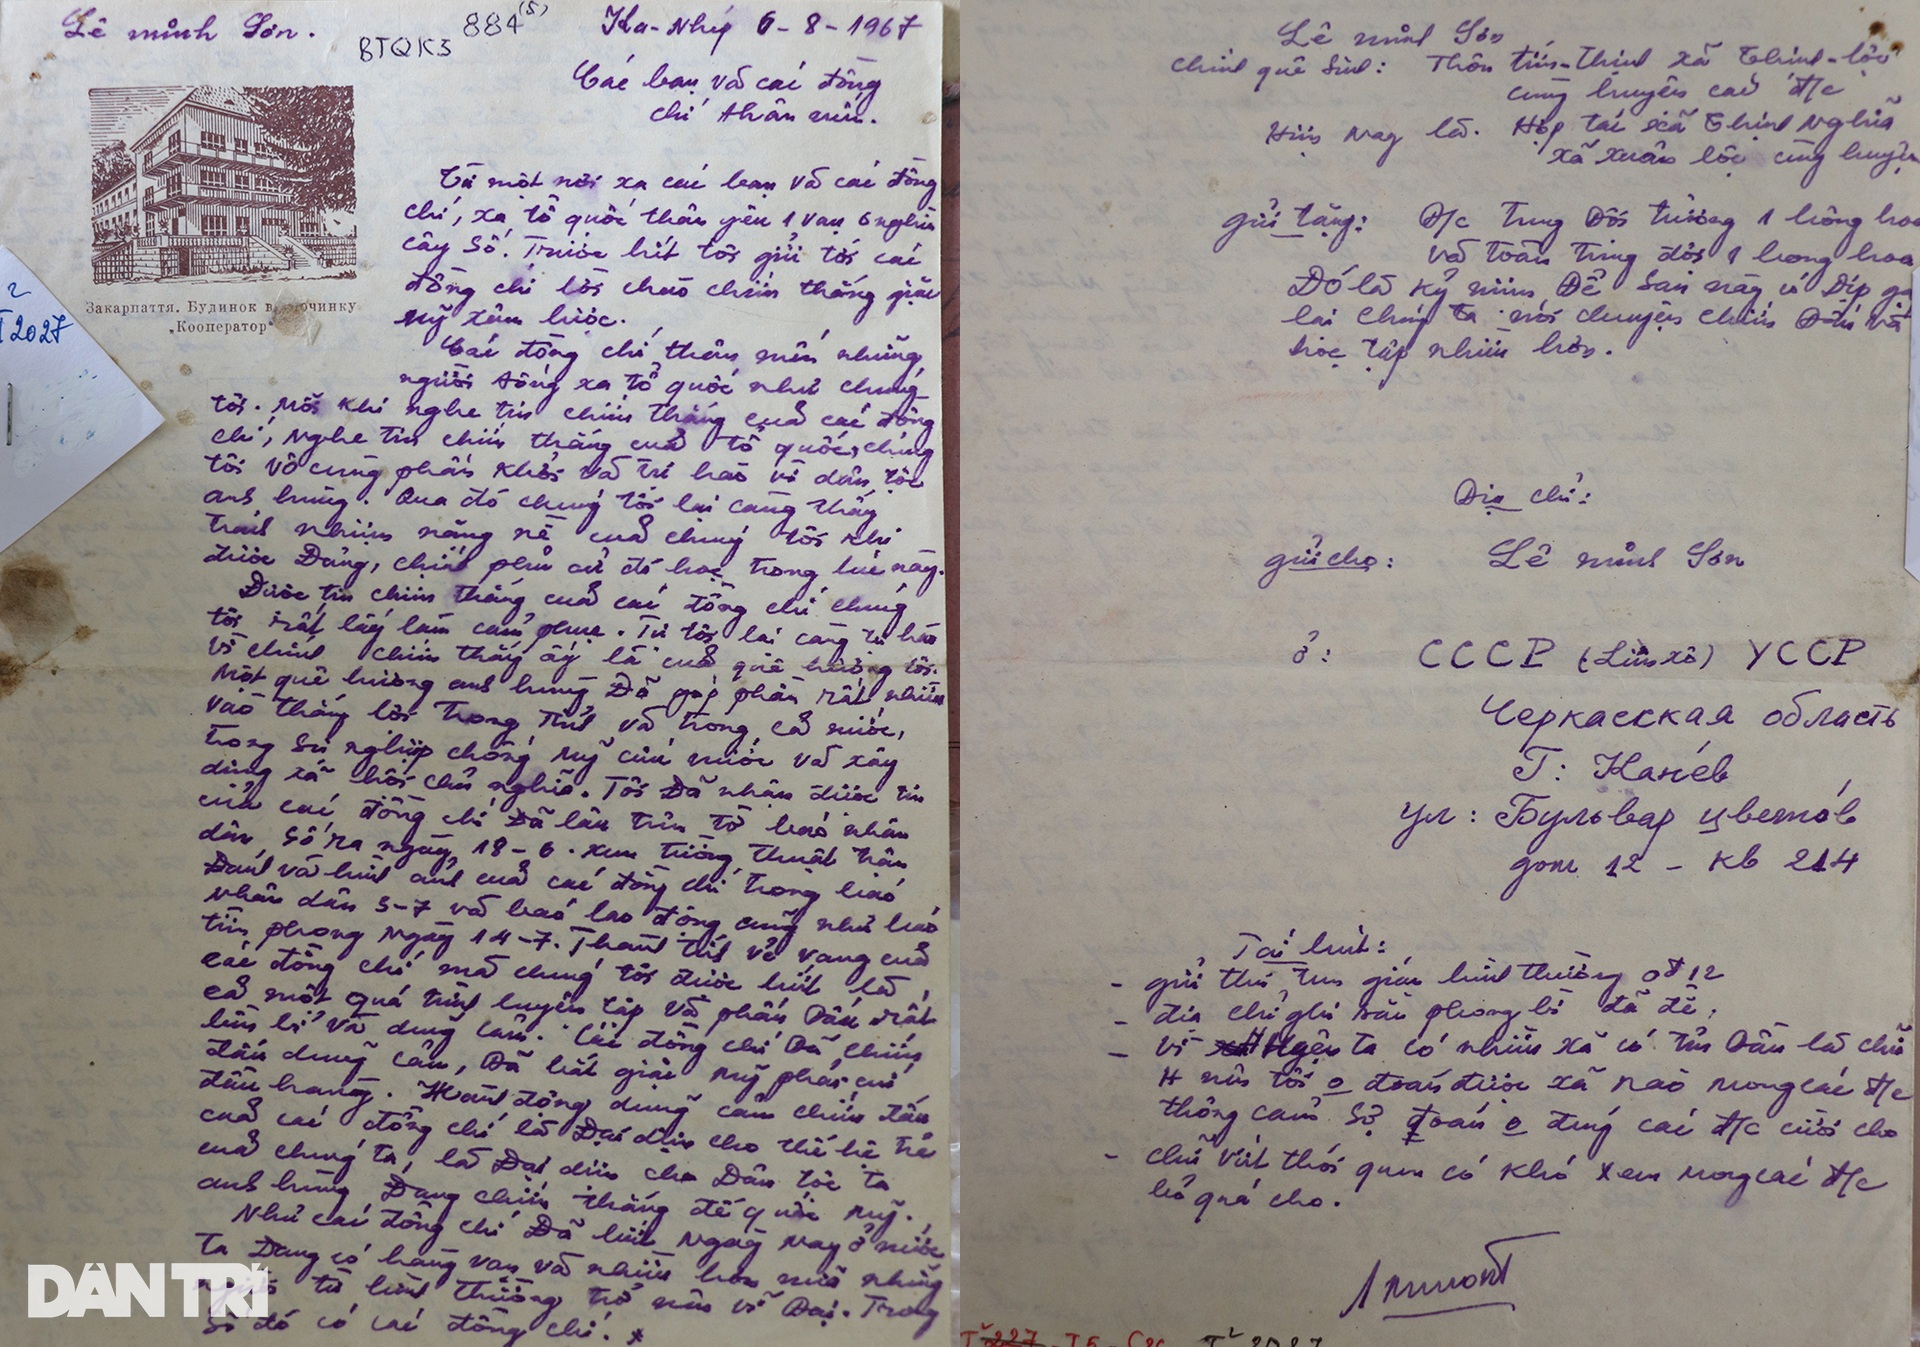 Lê minh Sơn.
BTQK3
884 (5)
Ka-Nhép 6-8-1967
Các bạn và các đồng
chí thân mến.
Закарпаття. Будинок відпочинку
„Кооператор"
T2027
Từ một nơi xa các bạn và các đồng
chí, xa tổ quốc thân yêu 1 vạn 6 nghìn
cây số. Trước hết tôi gửi tới các
đồng chí lời chào chiến thắng giặc
Mỹ xâm lược.
Các đồng chí thân mến những
người sống xa tổ quốc như chúng
tôi. Mỗi khi nghe tin chiến thắng của các đồng
chí, nghe tin chiến thắng của tổ quốc, chúng
tôi vô cùng phấn khởi và tự hào về dân tộc
anh hùng. Qua đó chúng tôi lại càng thấy
trách nhiệm nặng nề của chúng tôi khi
được Đảng, chính phủ cử đi học trong lúc này.
Được tin chiến thắng của các đồng chí chúng
tôi rất lấy làm cảm phục. Tự tôi lại càng tự hào
vì chính chiến thắng ấy là của quê hương tôi.
Một quê hương anh hùng Đã góp phần rất nhiều
vào thắng lợi trong tỉnh và trong cả nước,
trong sự nghiệp chống Mỹ cứu nước và xây
dựng xã hội chủ nghĩa. Tôi Đã nhận được tin
của các đồng chí Đã lâu trên tờ báo nhân
dân số ra ngày 18-6. Xem tường thuật trận
Đánh và hình ảnh của các đồng chí trong báo
Nhân dân 5-7 và báo lao động cũng như báo
tiền phong ngày 14-7. Thành tích vẻ vang của
các đồng chí mà chúng tôi được biết là
cả một quá trình luyện tập và phấn Đấu rất
bền bỉ và dũng cảm. Các đồng chí Đã chiến
đấu dũng cảm, Đã bắt giặc Mỹ phải cúi
đầu hàng. Hành động dũng cảm chiến đấu
của các đồng chí là Đại diện cho thế hệ trẻ
của chúng ta, là Đại diện cho Dân tộc ta
anh hùng Đang chiến thắng đế quốc Mỹ.
Như các đồng chí Đã biết Ngày nay ở nước
ta Đang có hàng vạn và nhiều hơn nữa những
người từ bình thường trở nên vĩ Đại. Trong
số đó có các đồng chí.
DÂN TRÍ
Lê minh Sơn
chính quê sinh: Thôn tiến-Thịnh xã Thịnh-lộc
cùng huyện các đ/c
Hiện nay là. Hợp tác xã Thịnh Nghĩa
xã xuân lộc cùng huyện
gửi tặng: Đ/c Trung Đội trưởng 1 bông hoa
và toàn trung đội 1 bông hoa
Đó là kỷ niệm Để sau này có Dịp gặp
lại chúng ta nói chuyện chiến Đấu và
học tập nhiều hơn.
Địa chỉ:
gửi cho: Lê minh Sơn
ở: CCCP (Liên xô) УССР
Черкасская область
Г: Канёв
ул: Бульвар цветов
дом 12 - кв 214
Tái bút:
- gửi thư tem gián bình thường 0đ12
- địa chỉ ghi trên phong bì đã đề.
- Vì Huyện ta có nhiều xã có tên Đầu là chữ
H nên tôi o đoán được xã nào mong các đ/c
thông cảm. Sợ đoán o đúng các đ/c cười cho
- chữ viết thói quen có khó xem mong các đ/c
bỏ quá cho.
T² 227 T5
T² 2027